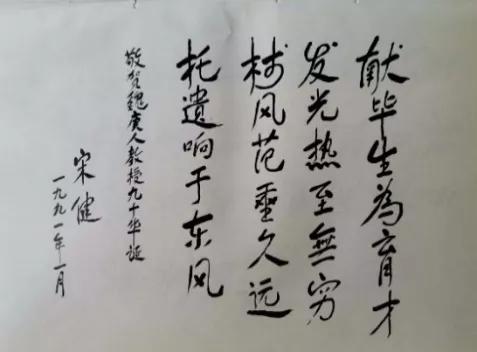 献毕生為育才
发光热至無穷
树风范垂久远
托遗响于东风
敬贺魏庚人教授九十华诞
宋健
一九九一年一月